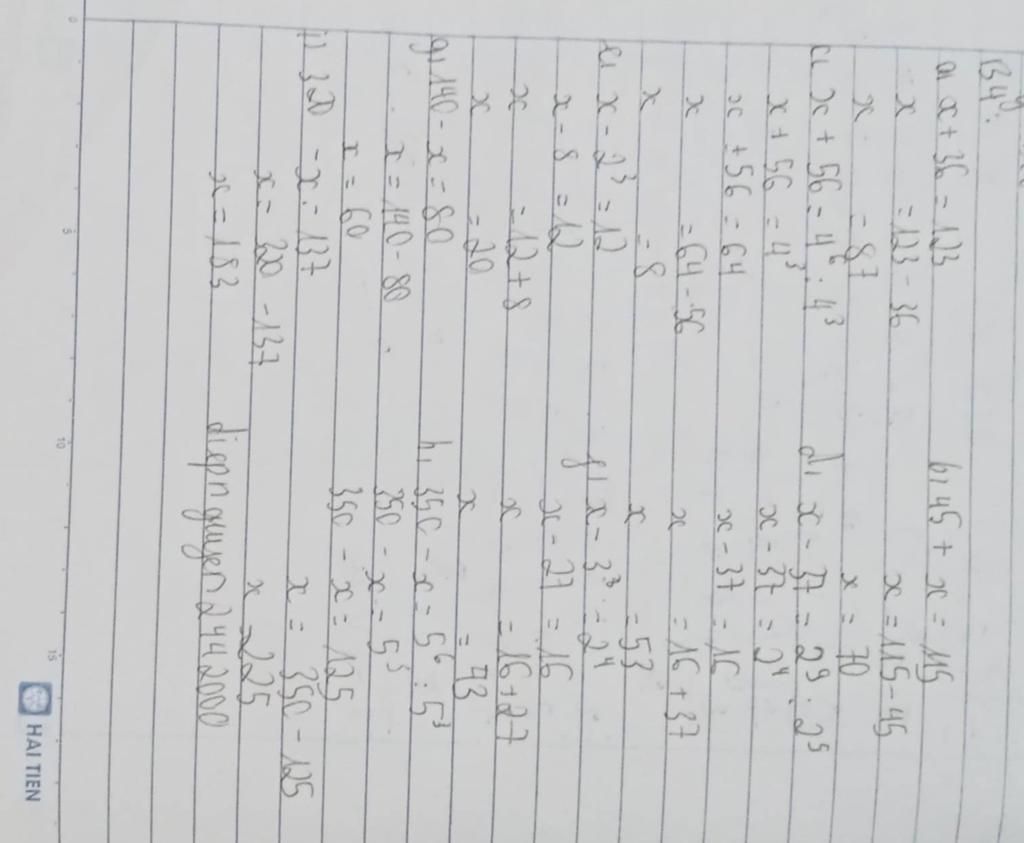 B4:
a, x + 36 = 123
x = 123 - 36
x = 87
b, 45 + x = 115
x = 115 - 45
x = 70
c, x + 56 = 4⁶ : 4³
x + 56 = 4³
x + 56 = 64
x = 64 - 56
x = 8
d, x - 37 = 2⁹ : 2⁵
x - 37 = 2⁴
x - 37 = 16
x = 16 + 37
x = 53
e, x - 2³ = 12
x - 8 = 12
x = 12 + 8
x = 20
f, x - 3³ = 2⁴
x - 27 = 16
x = 16 + 27
x = 43
g, 140 - x = 80
x = 140 - 80
x = 60
h, 350 - x = 5⁶ : 5³
350 - x = 5³
350 - x = 125
x = 350 - 125
x = 225
i, 320 - x = 137
x = 320 - 137
x = 183
diepnguyen2442000
0
5
10
15
HAI TIEN